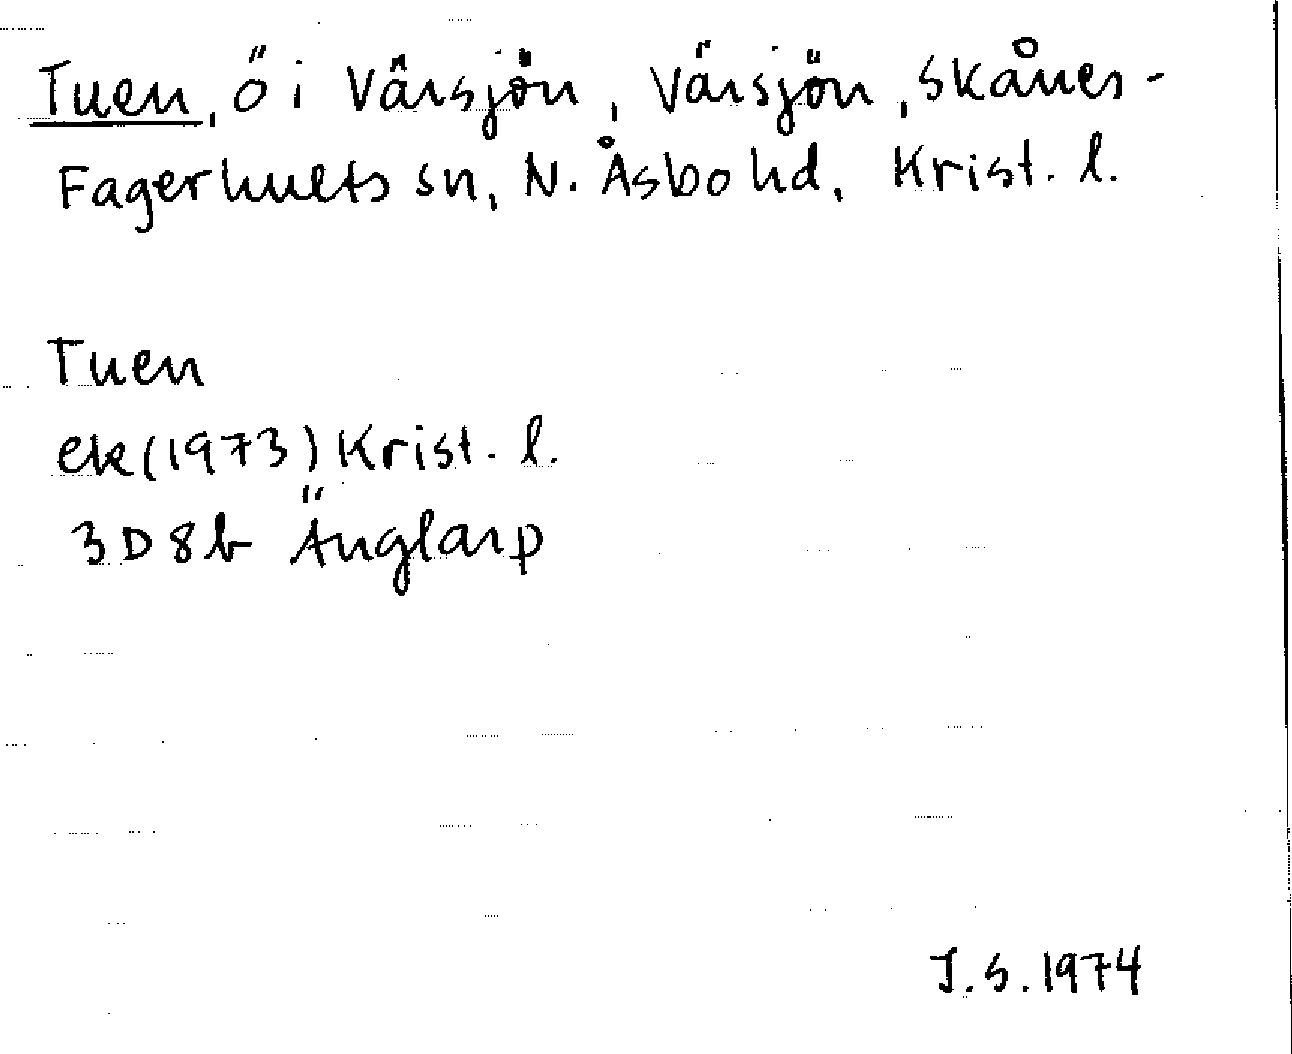 Tuen, ö i Värsjön, Värsjön, Skånes-
Fagerhults sn, N. Åsbo hd, Krist. l.
Tuen
ek (1973) Krist. l.
3D8b Änglarp
J.S. 1974